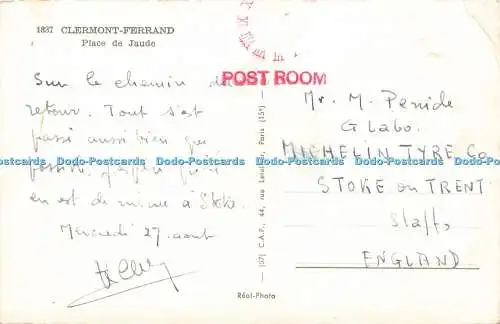 1837 CLERMONT-FERRAND
Place de Jaude
POST ROOM
Sur le chemin du
retour. Tout s'est
passé aussi bien que
possible. J'espère qu'il
en est de même à Stoke.
Mercredi 27 août
Mr. M. Penide
G Labo.
MICHELIN TYRE Co
STOKE on TRENT
Staffs
ENGLAND
(57) C.A.P., 44, rue Letellier, Paris (15e)
Réal-Photo
Dodo-Postcards Dodo-Postcards Dodo-Postcards Dodo-Postcards Dodo-Postcards